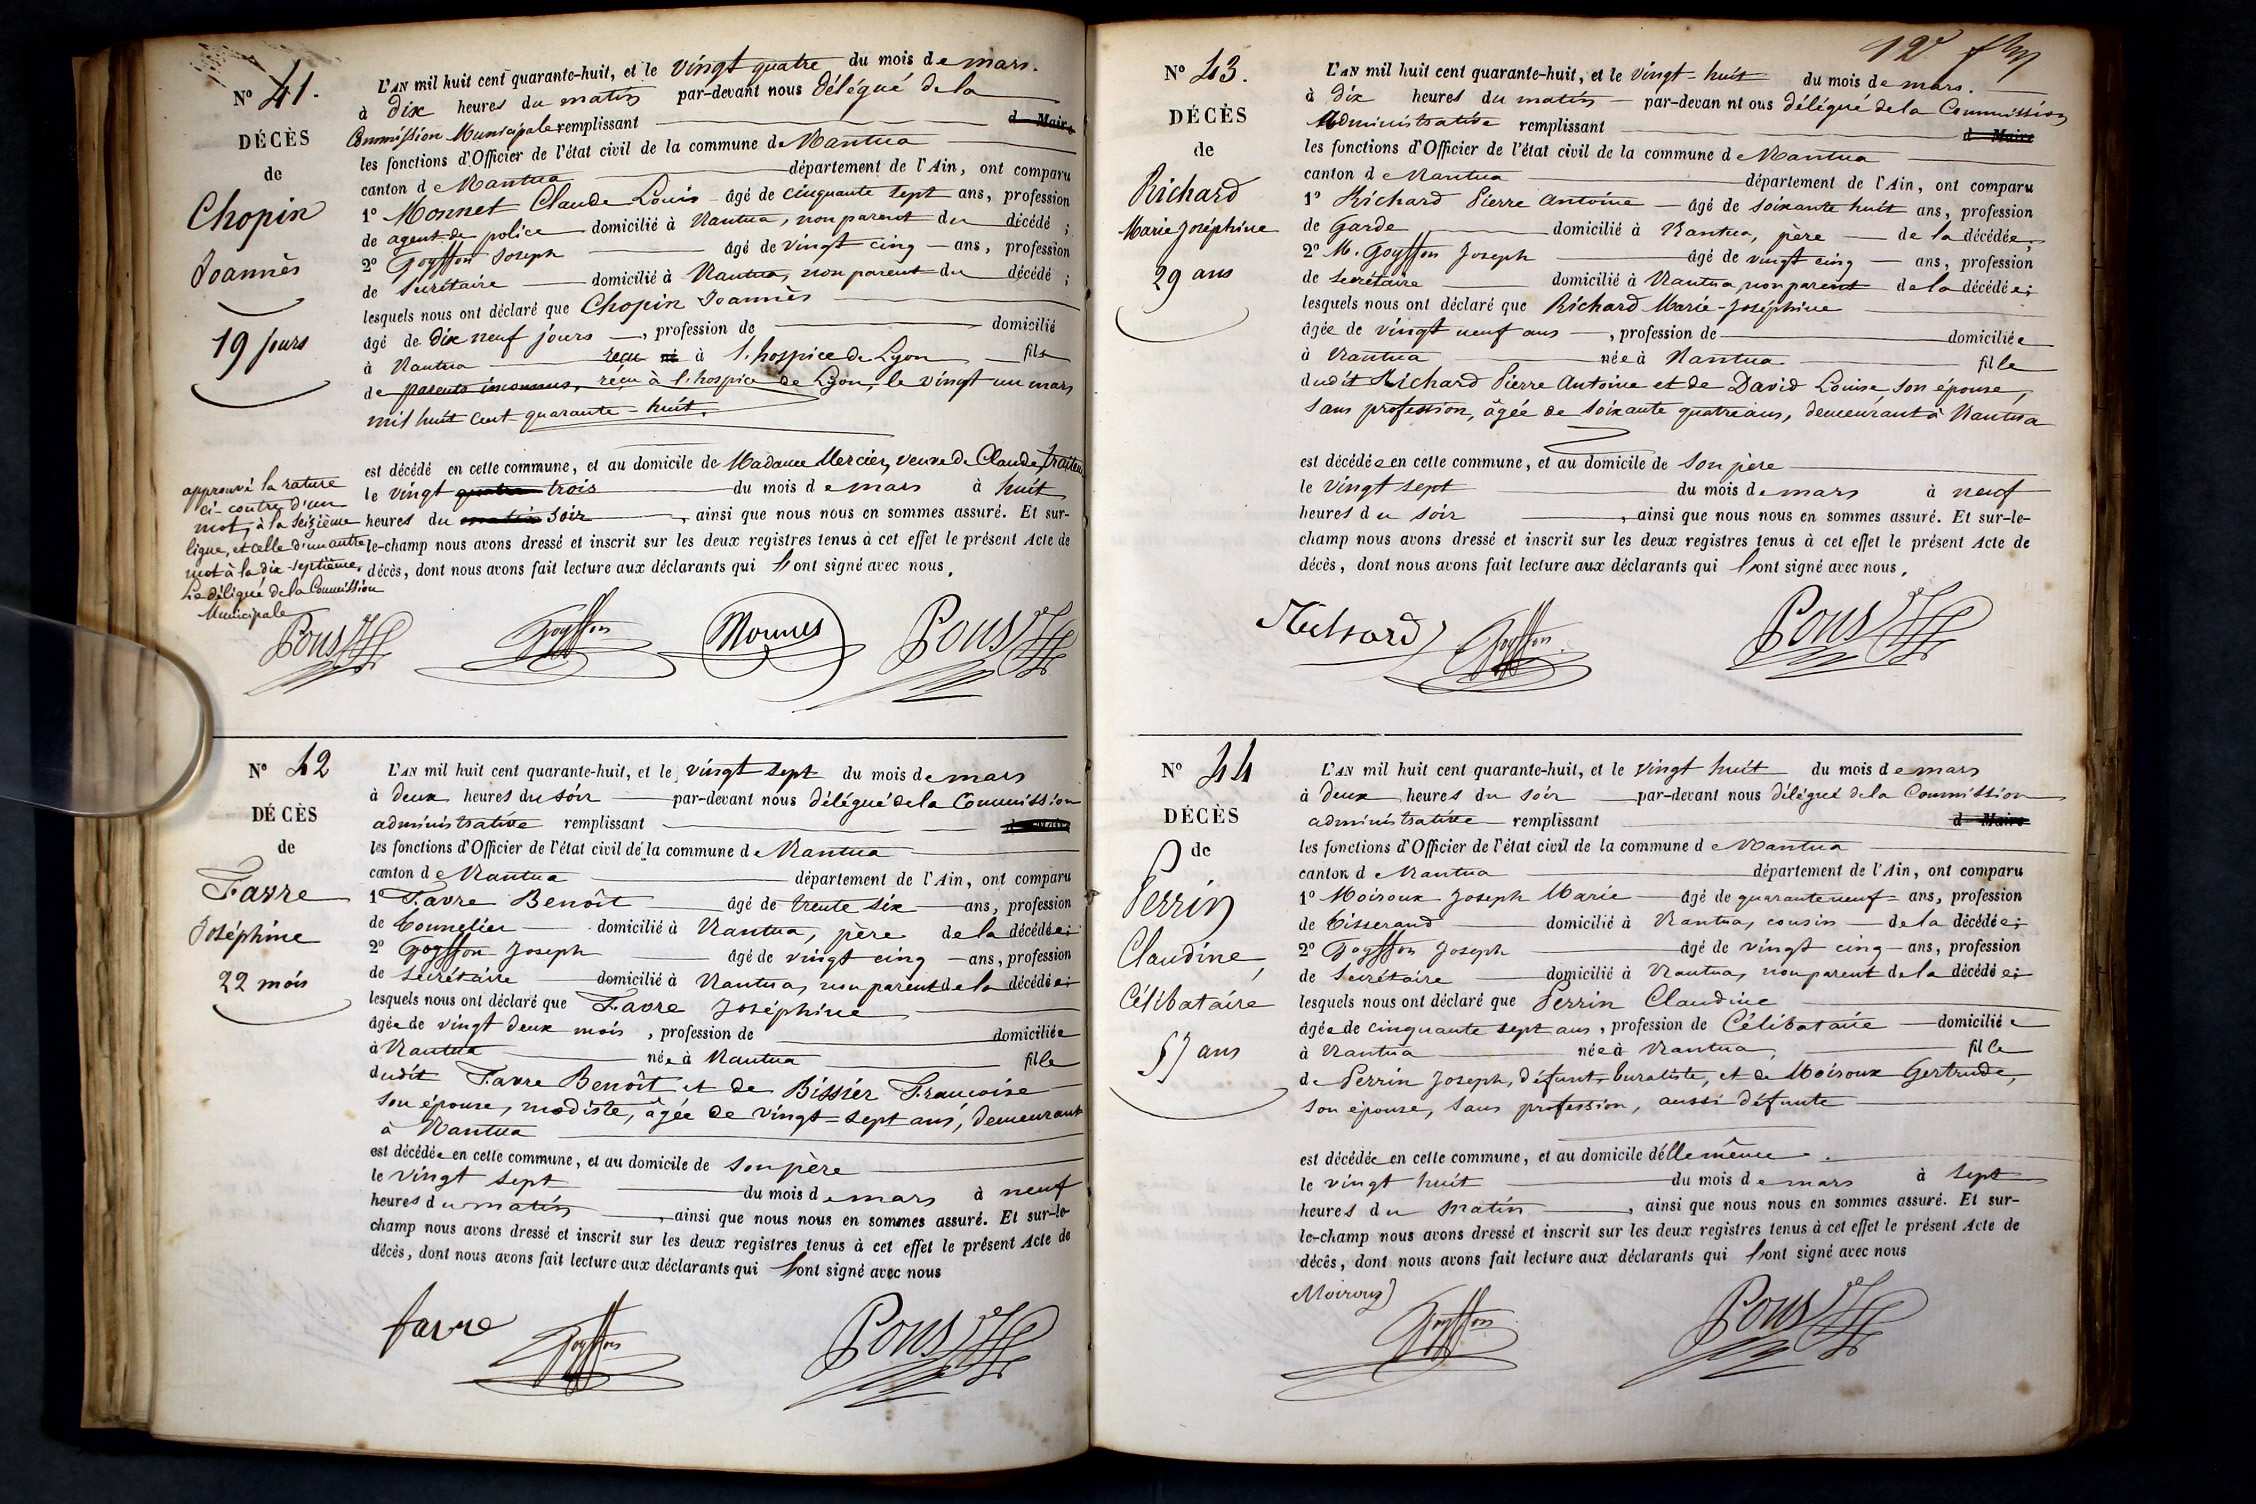 N° 41.
DÉCÈS
de
Chopin
Joannès
19 jours
L'AN mil huit cent quarante-huit, et le vingt quatre du mois de mars.
à dix heures du matin par-devant nous délégué de la
Commission Municipale remplissant d Maire
les fonctions d'Officier de l'état civil de la commune de Nantua
canton de Nantua département de l'Ain, ont comparu
1° Monnet Claude Louis âgé de cinquante sept ans, profession
de agent de police domicilié à Nantua, non parent du décédé ;
2° Goyffon Joseph âgé de vingt cinq ans, profession
de Secrétaire domicilié à Nantua, non parent du décédé ;
lesquels nous ont déclaré que Chopin Joannès
âgé de dix neuf jours, profession de domicilié
à Nantua reçu né à l'hospice de Lyon fils
de parents inconnus, reçu à l'hospice de Lyon, le vingt un mars
mil huit cent quarante-huit.
est décédé en cette commune, et au domicile de Madame Mercier, veuve de Claude, traiteur
le vingt quatre trois du mois de mars à huit
heures du matin soir, ainsi que nous nous en sommes assuré. Et sur-
le-champ nous avons dressé et inscrit sur les deux registres tenus à cet effet le présent Acte de
décès, dont nous avons fait lecture aux déclarants qui l'ont signé avec nous.
approuvé la rature
ci-contre d'un
mot, à la seizième
ligne, et celle d'un autre
mot à la dix-septième.
Le délégué de la Commission
Municipale
Pons Goyffon Monnet Pons
N° 42
DÉCÈS
de
Favre
Joséphine
22 mois
L'AN mil huit cent quarante-huit, et le vingt sept du mois de mars
à deux heures du soir par-devant nous délégué de la Commission
administrative remplissant
les fonctions d'Officier de l'état civil de la commune de Nantua
canton de Nantua département de l'Ain, ont comparu
1° Favre Benoît âgé de trente six ans, profession
de Tonnelier domicilié à Nantua, père de la décédée ;
2° Goyffon Joseph âgé de vingt cinq ans, profession
de Secrétaire domicilié à Nantua, non parent de la décédée ;
lesquels nous ont déclaré que Favre Joséphine
âgée de vingt deux mois, profession de domiciliée
à Nantua née à Nantua fille
dudit Favre Benoît et de Bissier Françoise
son épouse, modiste, âgée de vingt-sept ans, demeurant
à Nantua
est décédée en cette commune, et au domicile de son père
le vingt sept du mois de mars à neuf
heures du matin, ainsi que nous nous en sommes assuré. Et sur-le-
champ nous avons dressé et inscrit sur les deux registres tenus à cet effet le présent Acte de
décès, dont nous avons fait lecture aux déclarants qui l'ont signé avec nous
favre Goyffon Pons
12e
N° 43.
DÉCÈS
de
Richard
Marie Joséphine
29 ans
L'AN mil huit cent quarante-huit, et le vingt-huit du mois de mars.
à dix heures du matin par-devan nt ous délégué de la Commission
Administrative remplissant d Maire
les fonctions d'Officier de l'état civil de la commune de Nantua
canton de Nantua département de l'Ain, ont comparu
1° Richard Pierre Antoine âgé de soixante huit ans, profession
de Garde domicilié à Nantua, père de la décédée ;
2° M. Goyffon Joseph âgé de vingt cinq ans, profession
de Secrétaire domicilié à Nantua, non parent de la décédée ;
lesquels nous ont déclaré que Richard Marie-Joséphine
âgée de vingt neuf ans, profession de domiciliée
à Nantua née à Nantua fille
dudit Richard Pierre Antoine et de David Louise, son épouse,
sans profession, âgée de soixante quatre ans, demeurant à Nantua
est décédée en cette commune, et au domicile de son père
le vingt sept du mois de mars à neuf
heures du soir, ainsi que nous nous en sommes assuré. Et sur-le-
champ nous avons dressé et inscrit sur les deux registres tenus à cet effet le présent Acte de
décès, dont nous avons fait lecture aux déclarants qui l'ont signé avec nous.
Richard Goyffon Pons
N° 44
DÉCÈS
de
Perrin
Claudine,
Célibataire
57 ans
L'AN mil huit cent quarante-huit, et le vingt huit du mois de mars
à deux heures du soir par-devant nous délégué de la Commission
administrative remplissant d Maire
les fonctions d'Officier de l'état civil de la commune de Nantua
canton de Nantua département de l'Ain, ont comparu
1° Moiroux Joseph Marie âgé de quarante neuf ans, profession
de Tisserand domicilié à Nantua, cousin de la décédée ;
2° Goyffon Joseph âgé de vingt cinq ans, profession
de Secrétaire domicilié à Nantua, non parent de la décédée ;
lesquels nous ont déclaré que Perrin Claudine
âgée de cinquante sept ans, profession de Célibataire domiciliée
à Nantua née à Nantua, fille
de Perrin Joseph, défunt, buraliste, et de Moiroux Gertrude,
son épouse, sans profession, aussi défunte
est décédée en cette commune, et au domicile d'elle même.
le vingt huit du mois de mars à sept
heures du matin, ainsi que nous nous en sommes assuré. Et sur-
le-champ nous avons dressé et inscrit sur les deux registres tenus à cet effet le présent Acte de
décès, dont nous avons fait lecture aux déclarants qui l'ont signé avec nous
Moiroux Goyffon Pons